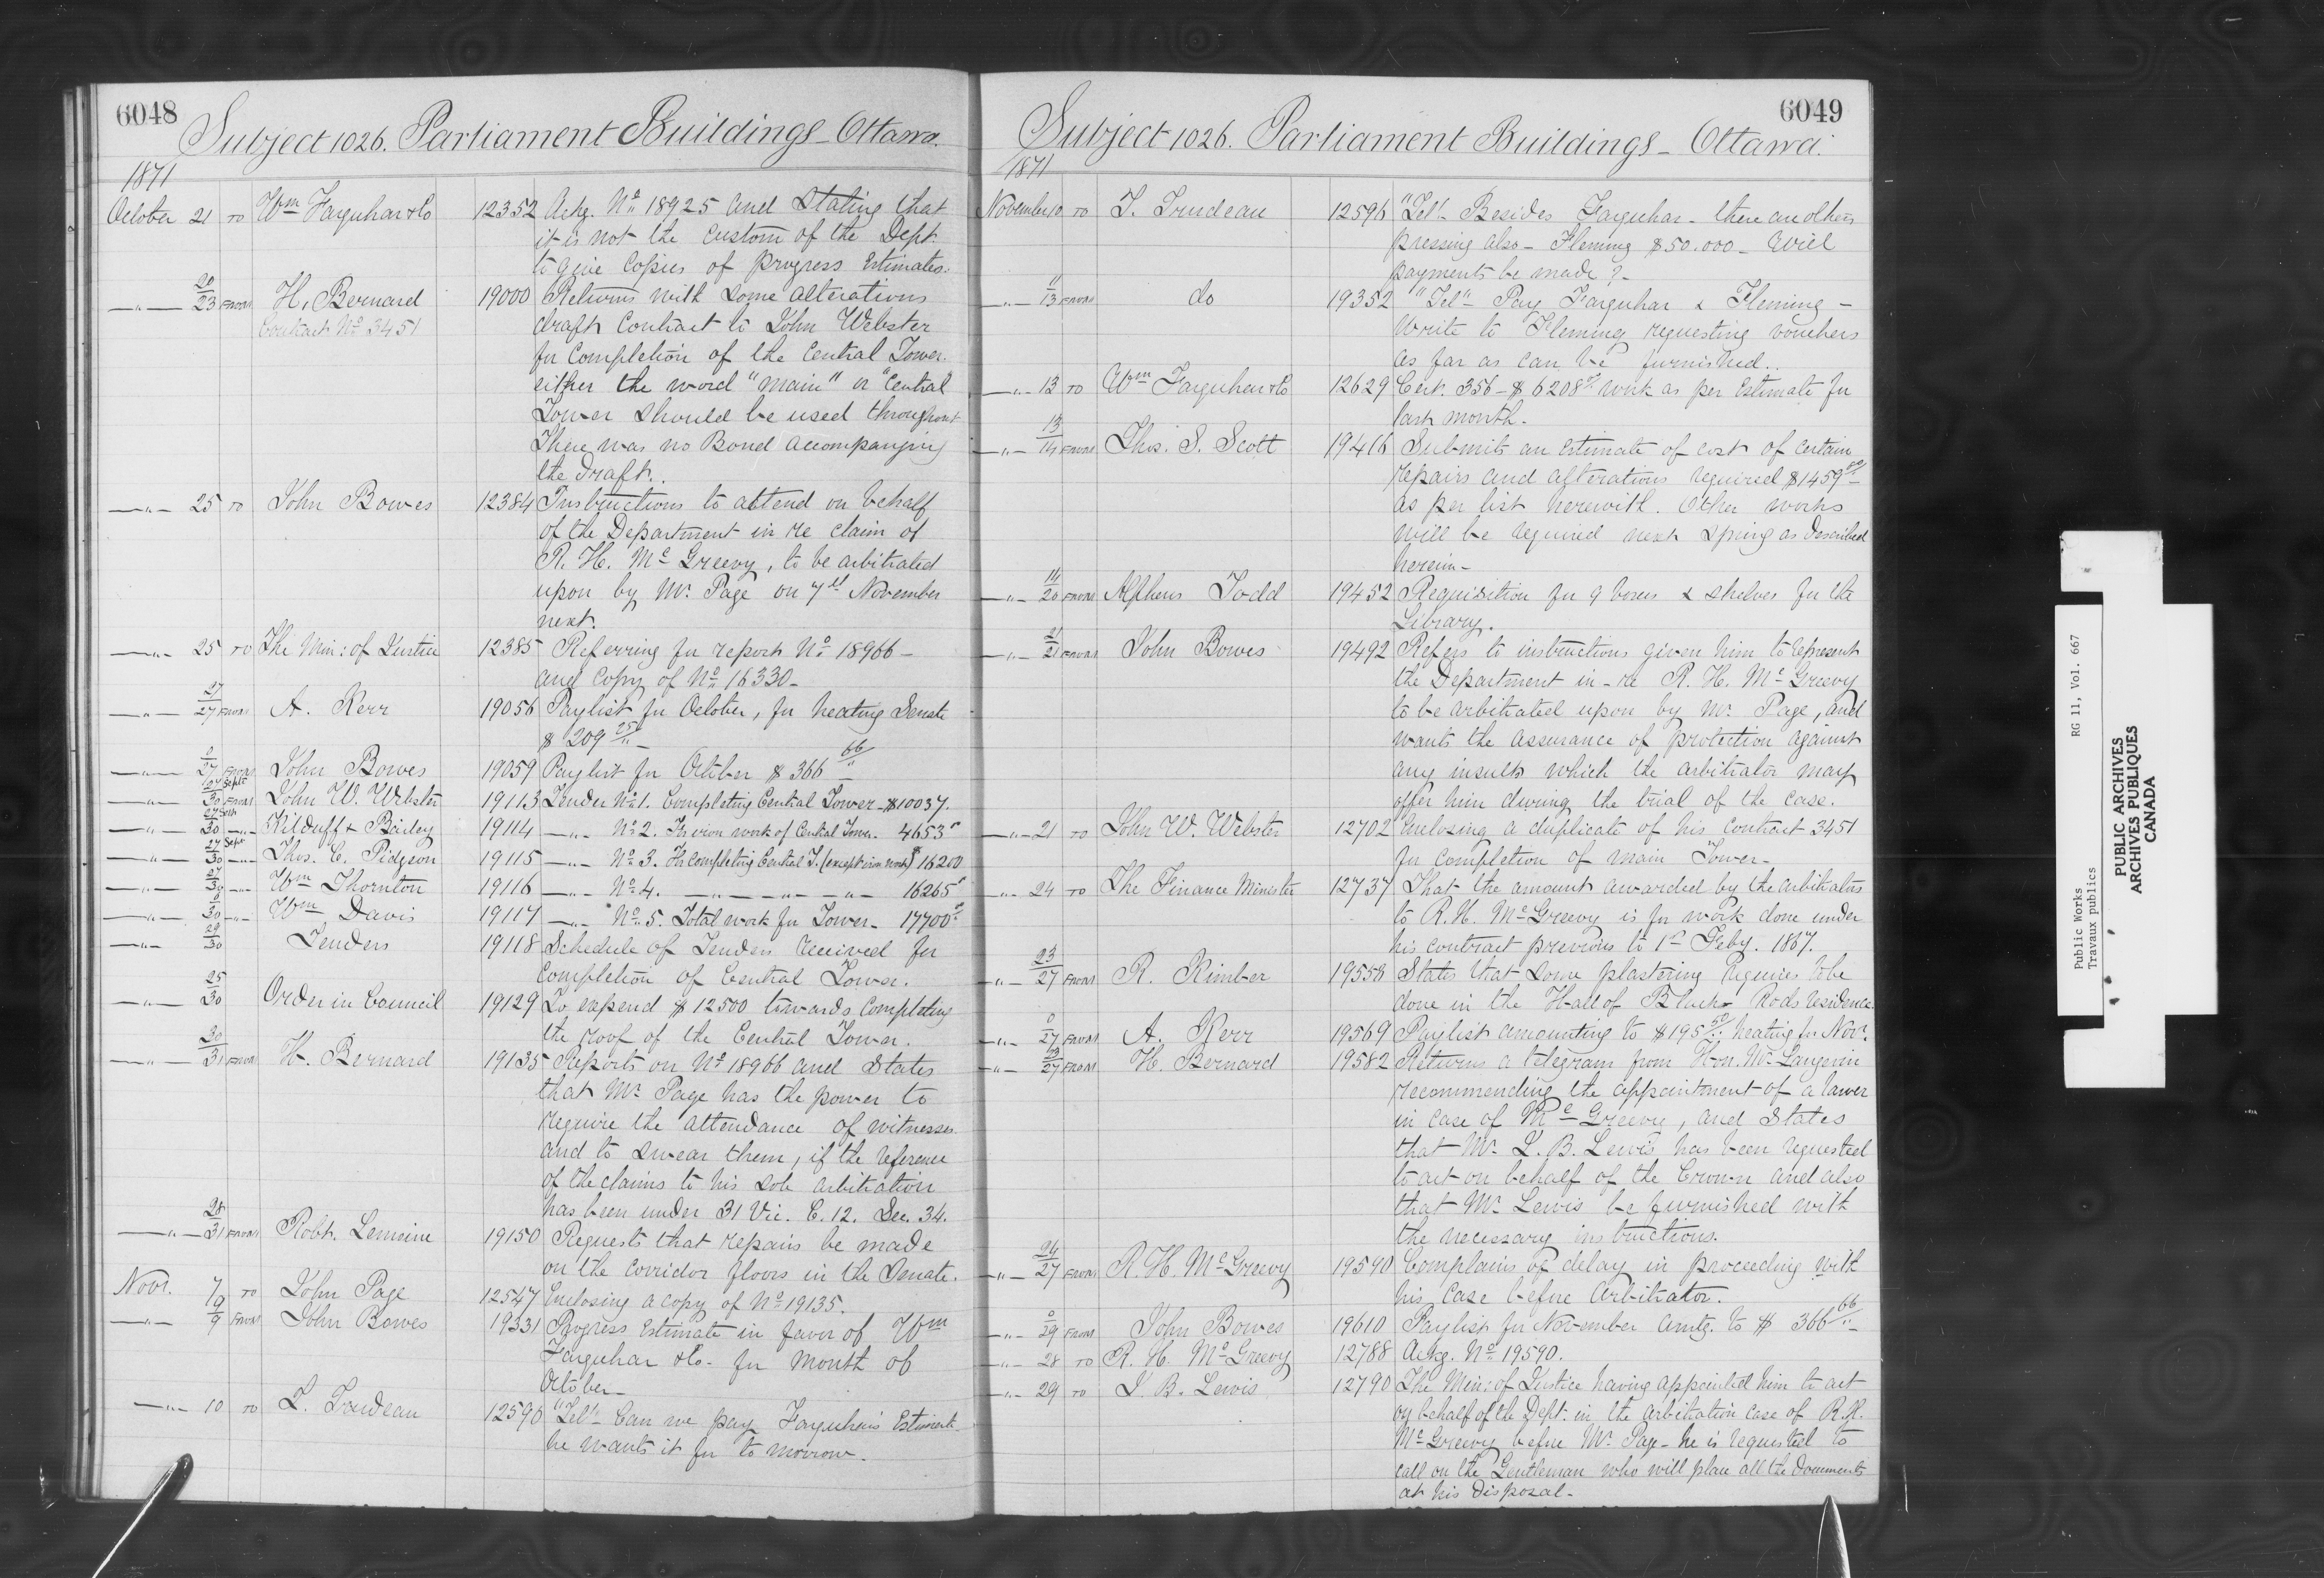 6048
Subject 1026. Parliament Buildings - Ottawa.
1871
October 21 TO Wm Farquhar & Co 12352 Ackg. No 18925 and Stating that
it is not the custom of the Dept.
to give Copies of progress Estimates.
— " — 20/23 FROM H. Bernard 19000 Returns with some alterations
Contract No 3451 draft Contract to John Webster
for completion of the Central Tower.
either the word "main" or "Central
Tower should be used throughout
There was no Bond accompanying
the draft.
— " — 25 TO John Bowes 12384 Instructions to attend on behalf
of the Department in re claim of
R. H. Mc Greevy, to be arbitrated
upon by Mr. Page on 7th November
next.
— " — 25 TO The Min: of Justice 12385 Referring for report No 18966 -
and Copy of No 16330 -
— " — 27/27 FROM A. Kerr 19056 Paylist for October, for heating Senate
$ 209 25/" -
— " — 0/27 FROM John Bowes 19059 Paylist for October $ 366 66/"
— " — 27 Sept/30 FROM John W. Webster 19113 Tender No 1. Completing Central Tower - $10037.
— " — 27 Sept/30 — " — Kilduff & Bailey 19114 — " — No 2. For iron work of Central Tower. 4653"
— " — 27 Sept/30 — " — Thos. C. Pidgson 19115 — " — No 3. For completing Central T. (except iron work) $ 16200
— " — 27/30 — " — Wm Thornton 19116 — " — No 4. — " — " — " — 16265"
— " — 0/30 — " — Wm Davis 19117 — " — No 5. Total work for Tower - 17700"
— " — 29/30 Tenders 19118 Schedule of Tenders received for
completion of Central Tower.
— " — 25/30 Order in Council 19129 To expend $ 12500 towards completing
the roof of the Central Tower.
— " — 30/31 FROM H. Bernard 19135 Reports on No 18966 and States
that Mr. Page has the power to
require the attendance of witnesses
and to swear them, if the reference
of the claims to his sole arbitration
has been under 31 Vic. C. 12. Sec. 34.
— " — 28/31 FROM Robt. Lemoine 19150 Requests that repairs be made
on the corridor floors in the Senate.
Novr. 7 TO John Page 12547 Enclosing a copy of No 19135.
— " — 9/9 FROM John Bowes 19331 Progress Estimate in favor of Wm
Farquhar & Co. for month of
October -
— " — 10 TO T. Trudeau 12596 "Tel" Can we pay Farquhar's Estimate
he wants it for to morrow.
6049
Subject 1026. Parliament Buildings - Ottawa.
1871
November 10 TO T. Trudeau 12596 "Tel" Besides Farquhar - there are others
pressing also - Fleming $50.000 - Will
payments be made ? -
— " — 11/13 FROM do 19352 "Tel" Pay Farquhar & Fleming -
Write to Fleming requesting vouchers
as far as can be furnished.
— " — 13 TO Wm Farquhar & Co 12629 Cert. 356 - $ 6208" work as per Estimate for
last month.
— " — 13/14 FROM Thos. S. Scott 19416 Submits an estimate of cost of certain
repairs and alterations required $1459
as per list herewith. Other works
will be required next Spring as described
herein -
— " — 14/20 FROM Alpheus Todd 19452 Requisition for 9 boxes & shelves for the
Library.
— " — 21/21 FROM John Bowes 19492 Refers to instructions given him to represent
the Department in - re R. H. Mc Greevy
to be arbitrated upon by Mr. Page, and
wants the assurance of protection against
any insults which the arbitrator may
offer him during the trial of the case.
— " — 21 TO John W. Webster 12702 Enclosing a duplicate of his Contract 3451
for completion of main Tower -
— " — 24 TO The Finance Minister 12737 That the amount awarded by the arbitrators
to R. H. McGreevy is for work done under
his contract previous to 1st Feby. 1867.
— " — 23/27 FROM R. Kimber 19558 States that some plastering requires to be
done in the Hall of Black Rods residence.
— " — 0/27 FROM A. Kerr 19569 Paylist amounting to $195 50/" heating for Novr.
— " — 23/27 FROM H. Bernard 19582 Returns a telegram from Hon. Mr. Langevin
recommending the appointment of a lawer
in case of Mc Greevy, and States
that Mr. J. B. Lewis has been requested
to act on behalf of the Crown and also
that Mr. Lewis be furnished with
the necessary instructions.
— " — 24/27 FROM R. H. Mc Greevy 19590 Complains of delay in proceeding with
his case before Arbitrator.
— " — 0/29 FROM John Bowes 19610 Paylist for November amtg. to $ 366 66/" -
— " — 28 TO R. H. Mc Greevy 12788 Ackg. No 19590.
— " — 29 TO J. B. Lewis 12790 The Min: of Justice having appointed him to act
on behalf of the Dept. in the arbitration case of R. H.
Mc Greevy before Mr. Page - he is requested to
call on the Gentleman who will place all the documents
at his disposal -
Public Works RG 11, Vol. 667
Travaux publics
PUBLIC ARCHIVES
ARCHIVES PUBLIQUES
CANADA